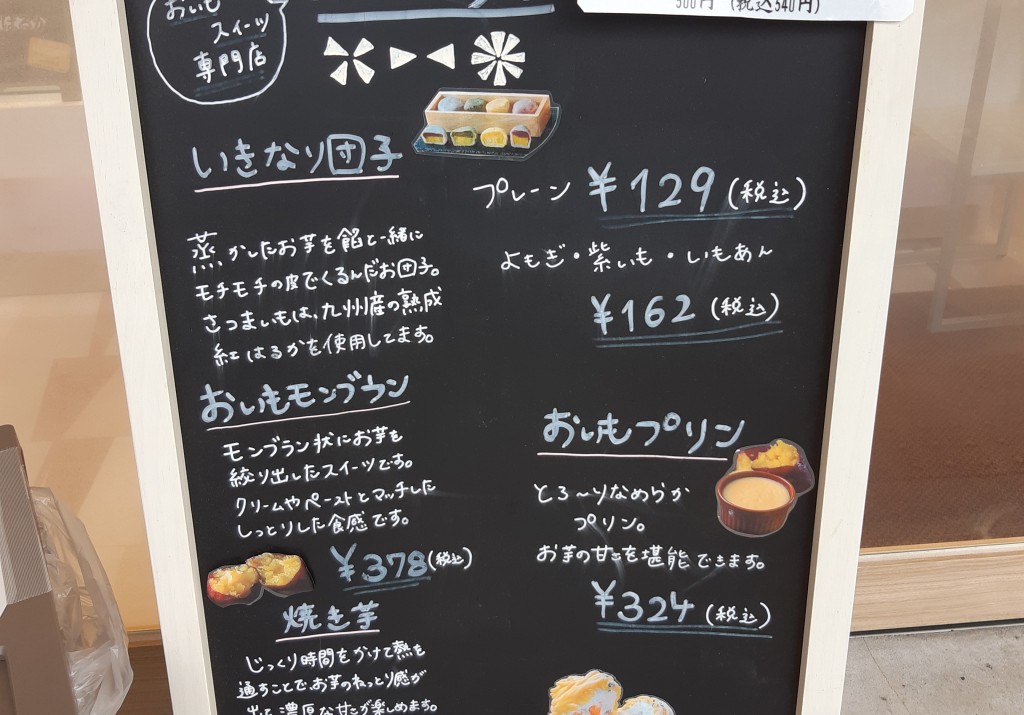 500円 (税込540円)
おいも
スイーツ
専門店
いきなり団子
プレーン ¥129(税込)
よもぎ・紫いも・いもあん
¥162(税込)
蒸かしたお芋を餡と一緒に
モチモチの皮でくるんだお団子。
さつまいもは、九州産の熟成
紅はるかを使用してます。
おいもモンブラン
モンブラン状にお芋を
絞り出したスイーツです。
クリームやペーストとマッチした
しっとりした食感です。
¥378(税込)
おいもプリン
とろ〜りなめらか
プリン。
お芋の甘さを堪能できます。
¥324(税込)
焼き芋
じっくり時間をかけて熱を
通すことで、お芋のねっとり感が
出た濃厚な甘さが楽しめます。